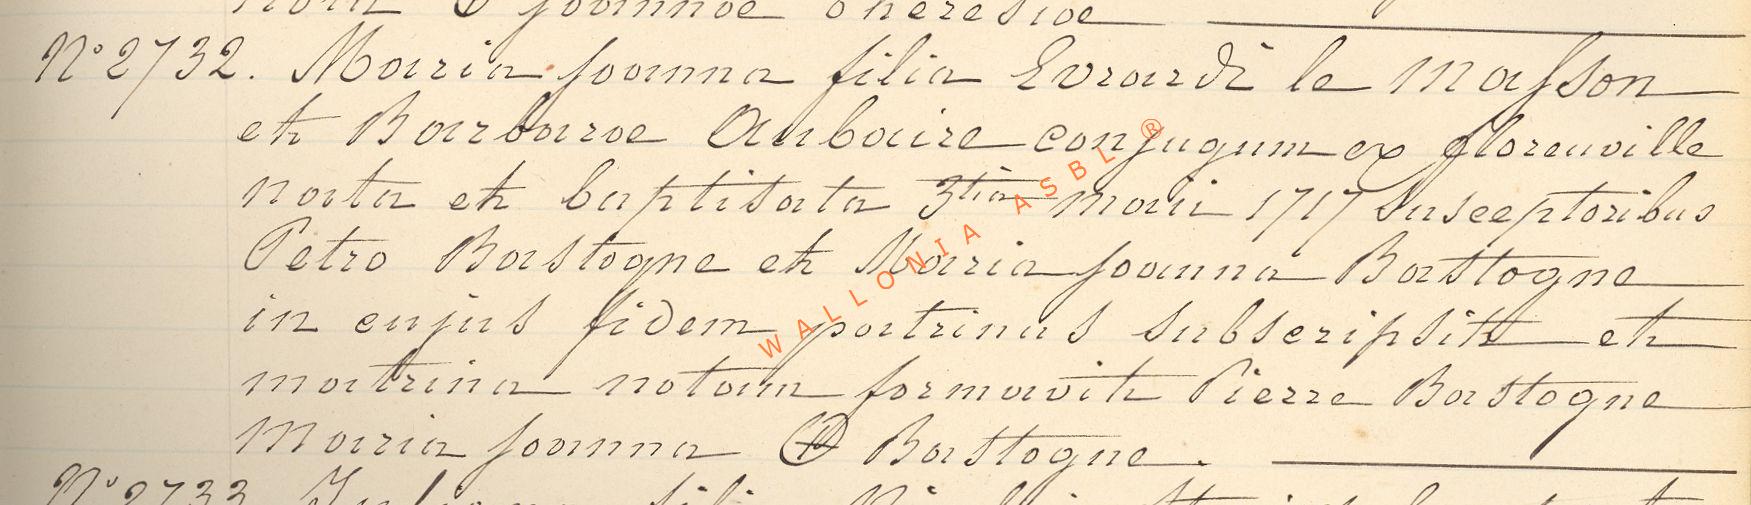 Joannae Theresiae
N° 2732. Maria Joanna filia Evrardi le Masson
et Barbarae Aubaire conjugum ex florenville
nata et baptisata 3tia maii 1717 Susceptoribus
Petro Bastogne et Maria Joanna Bastogne
in cujus fidem patrinus subscripsit et
matrina notam formavit Pierre Bastogne
Maria Joanna Bastogne.
N° 2733.
WALLONIA ASBL ®